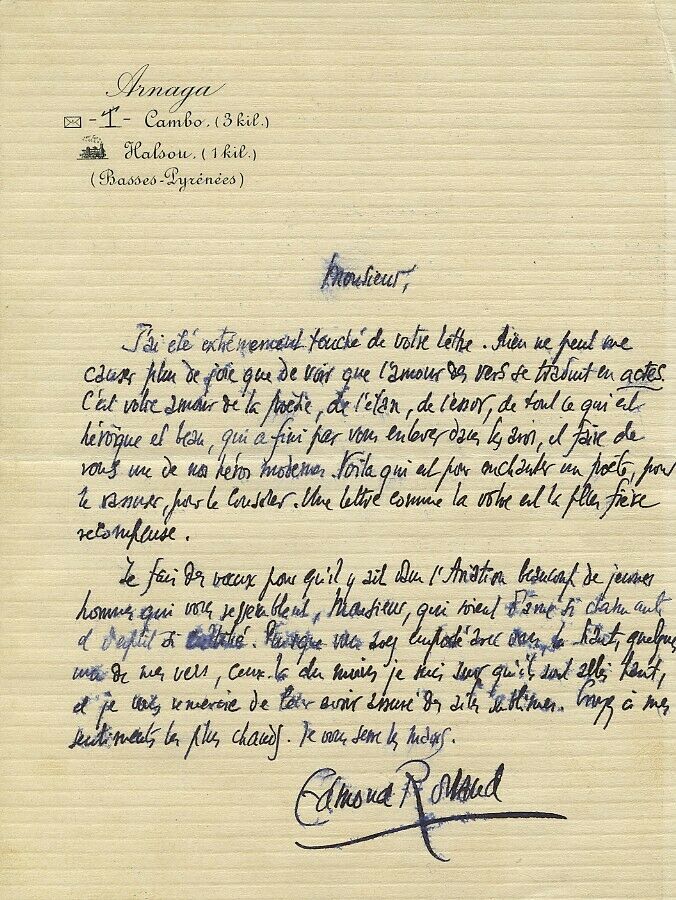 Arnaga
- 1 - Cambo. (3 kil.)
Halsou. (1 kil.)
(Basses-Pyrénées)
Monsieur,
J'ai été extrêmement touché de votre lettre. Rien ne peut me
causer plus de joie que de voir que l'amour des vers se traduit en actes.
C'est votre amour de la poésie, de l'élan, de l'essor, de tout ce qui est
héroïque et beau, qui a fini par vous enlever dans les airs, et faire de
vous un de nos héros modernes. Voilà qui est pour enchanter un poète, pour
le rassurer, pour le consoler. Une lettre comme la votre est la plus fière
récompense.
Je fais des vœux pour qu'il y ait dans l'Aviation beaucoup de jeunes
hommes qui vous ressemblent, Monsieur, qui soient d'âme si charmante
et d'esprit si cultivé. Puisque vous avez emporté avec vous, là-haut, quelques
uns de mes vers, ceux-là du moins je suis sur qu'ils sont allés haut,
et je vous remercie de leur avoir assuré des ailes sublimes. Croyez à mes
sentiments les plus chauds. Je vous serre les mains.
Edmond Rostand